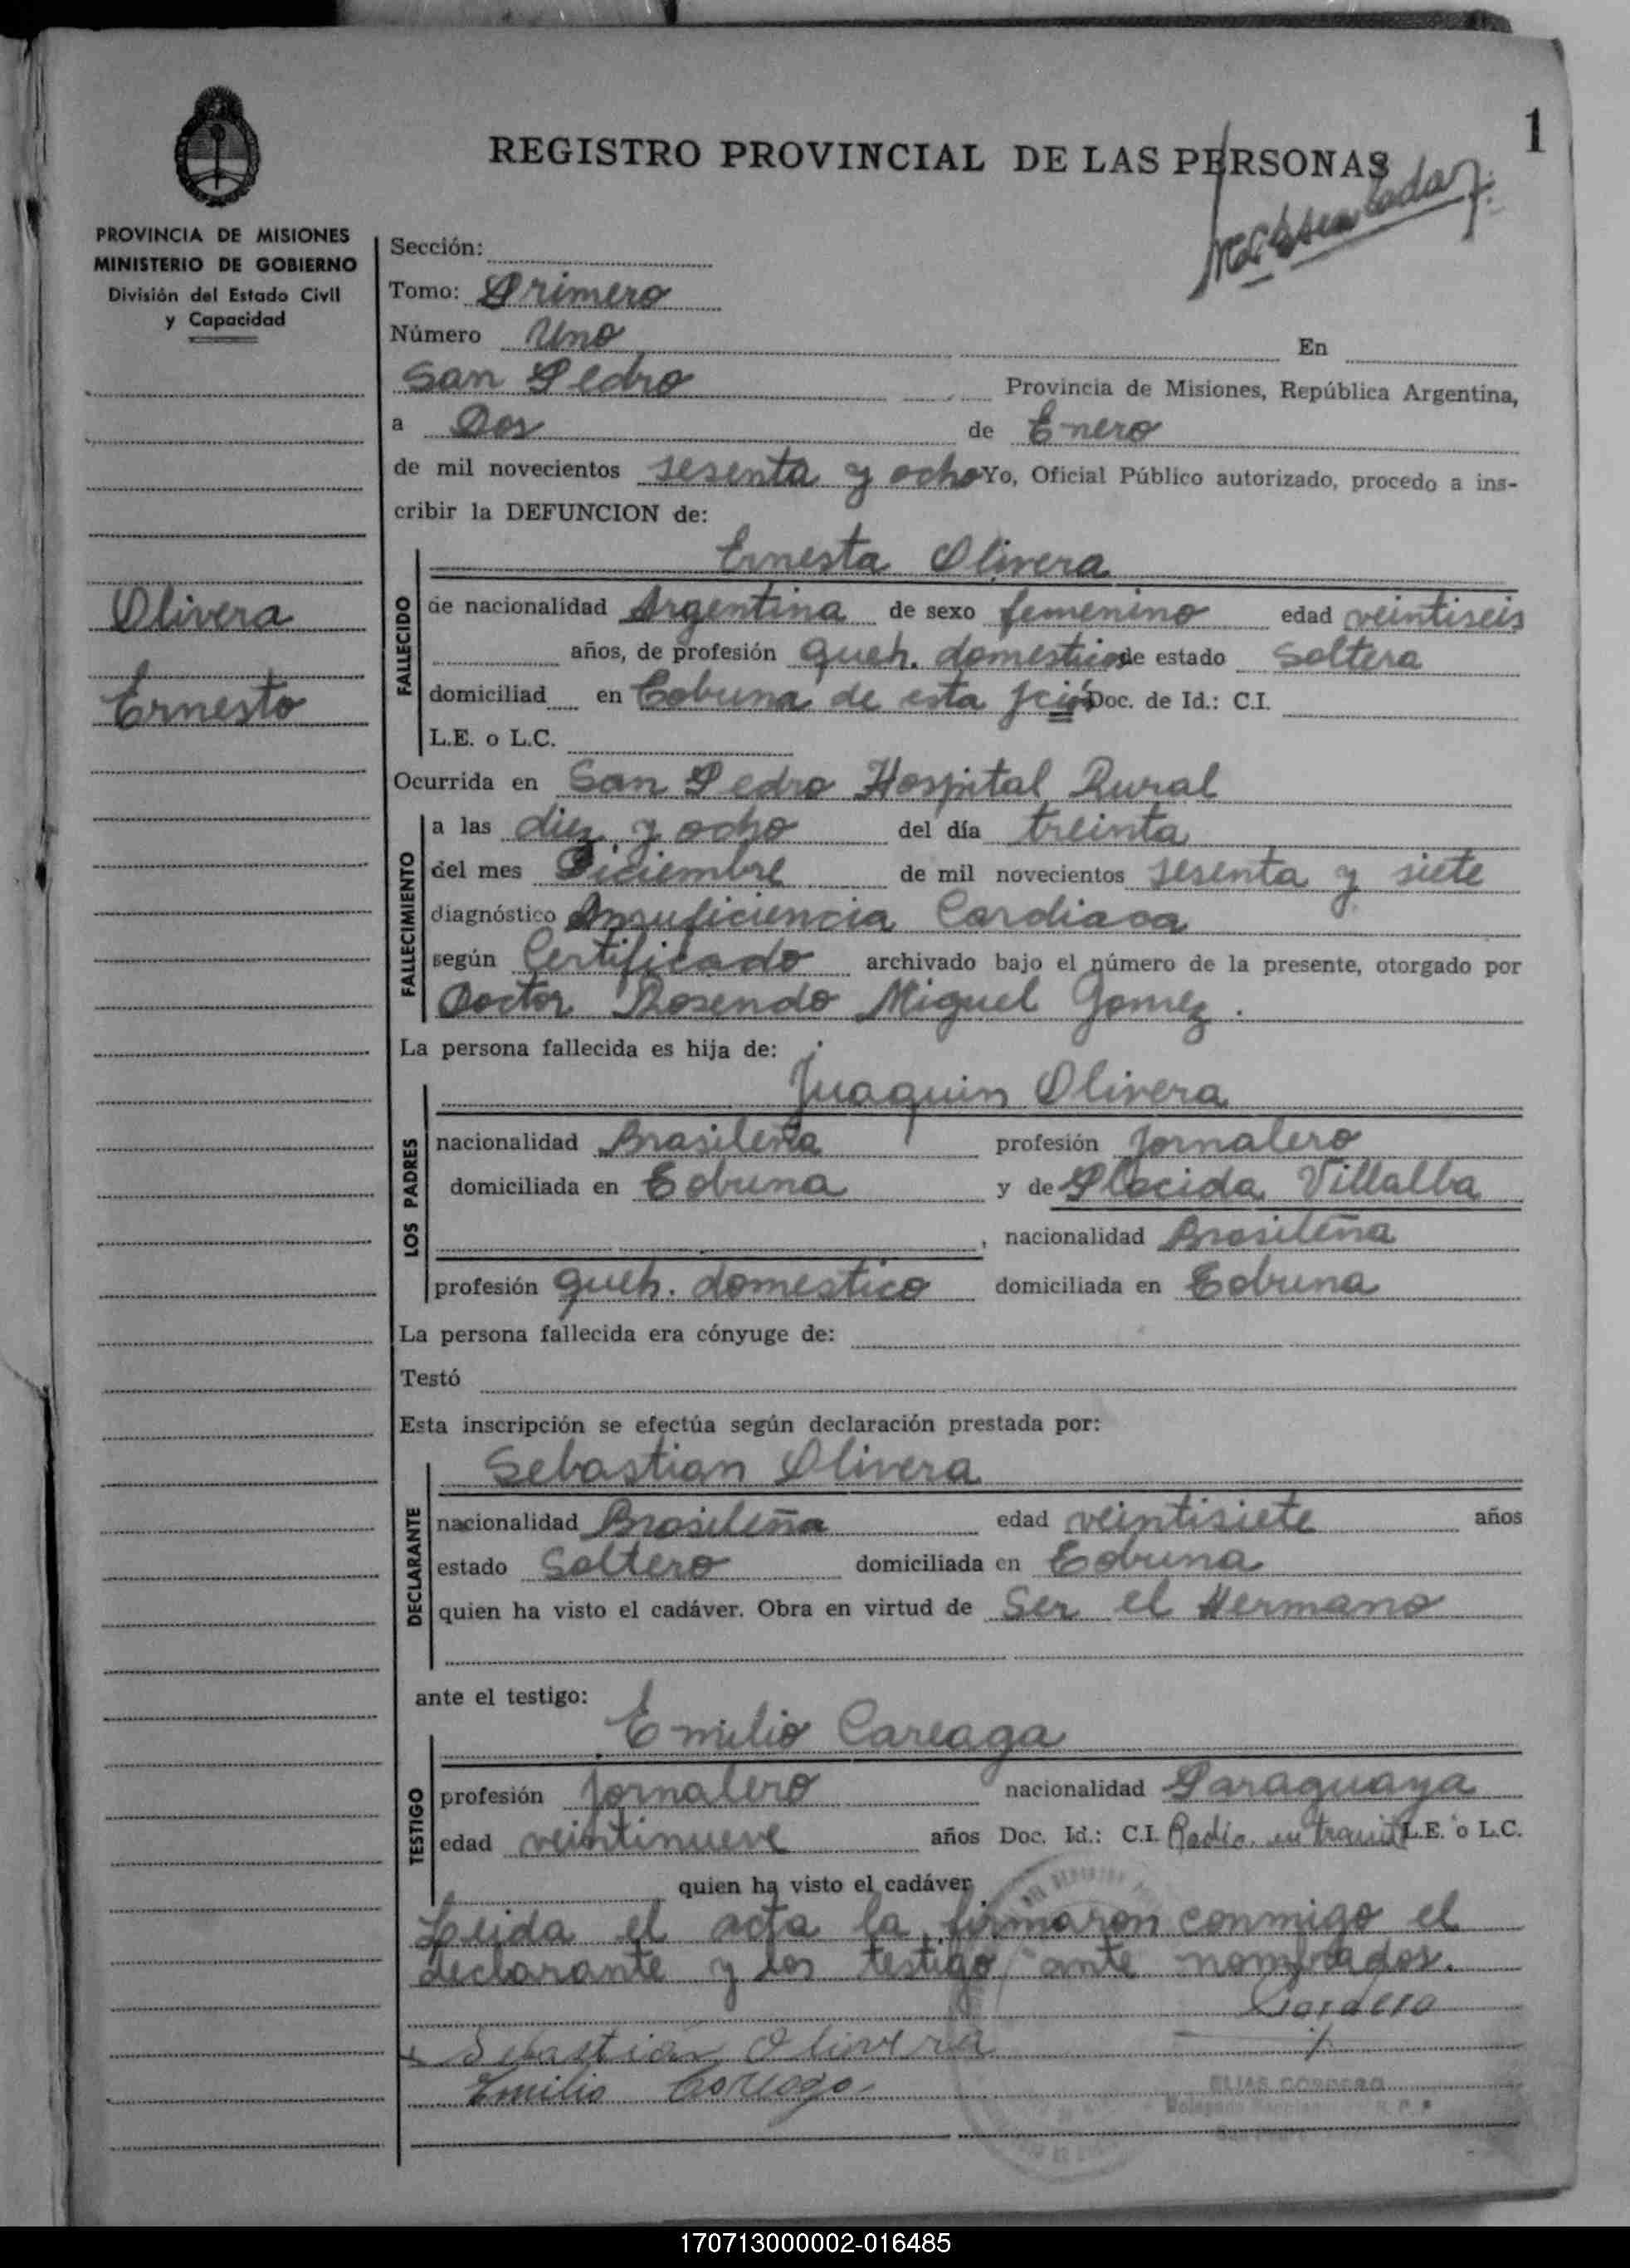 1
REGISTRO PROVINCIAL DE LAS PERSONAS
PROVINCIA DE MISIONES
MINISTERIO DE GOBIERNO
División del Estado Civil
y Capacidad
Sección:
Tomo: Primero
Número Uno En
San Pedro Provincia de Misiones, República Argentina,
a Dos de Enero
de mil novecientos sesenta y ocho Yo, Oficial Público autorizado, procedo a ins-
cribir la DEFUNCION de:
Olivera
Ernesto
FALLECIDO
Ernesta Olivera
de nacionalidad Argentina de sexo femenino edad veintiseis
años, de profesión queh. domestico de estado Soltera
domiciliad en Tobuna de esta jción Doc. de Id.: C.I.
L.E. o L.C.
Ocurrida en San Pedro Hospital Rural
FALLECIMIENTO
a las diez y ocho del día treinta
del mes Diciembre de mil novecientos sesenta y siete
diagnóstico Insuficiencia Cardiaca
según Certificado archivado bajo el número de la presente, otorgado por
Doctor Rosendo Miguel Gomez.
La persona fallecida es hija de:
LOS PADRES
Juaquin Olivera
nacionalidad Brasileña profesión Jornalero
domiciliada en Tobuna y de Placida Villalba
, nacionalidad Brasileña
profesión queh. domestico domiciliada en Tobuna
La persona fallecida era cónyuge de:
Testó
Esta inscripción se efectúa según declaración prestada por:
DECLARANTE
Sebastian Olivera
nacionalidad Brasileña edad veintisiete años
estado Soltero domiciliada en Tobuna
quien ha visto el cadáver. Obra en virtud de Ser el Hermano
ante el testigo:
TESTIGO
Emilio Careaga
profesión Jornalero nacionalidad Paraguaya
edad veintinueve años Doc. Id.: C.I. Radic. en tramit L.E. o L.C.
quien ha visto el cadáver
Leida el acta la firmaron conmigo el
declarante y los testigo ante nombrados.
Cordero
Sebastián Olivera
Emilio Careaga
ELIAS CORDERO
170713000002-016485